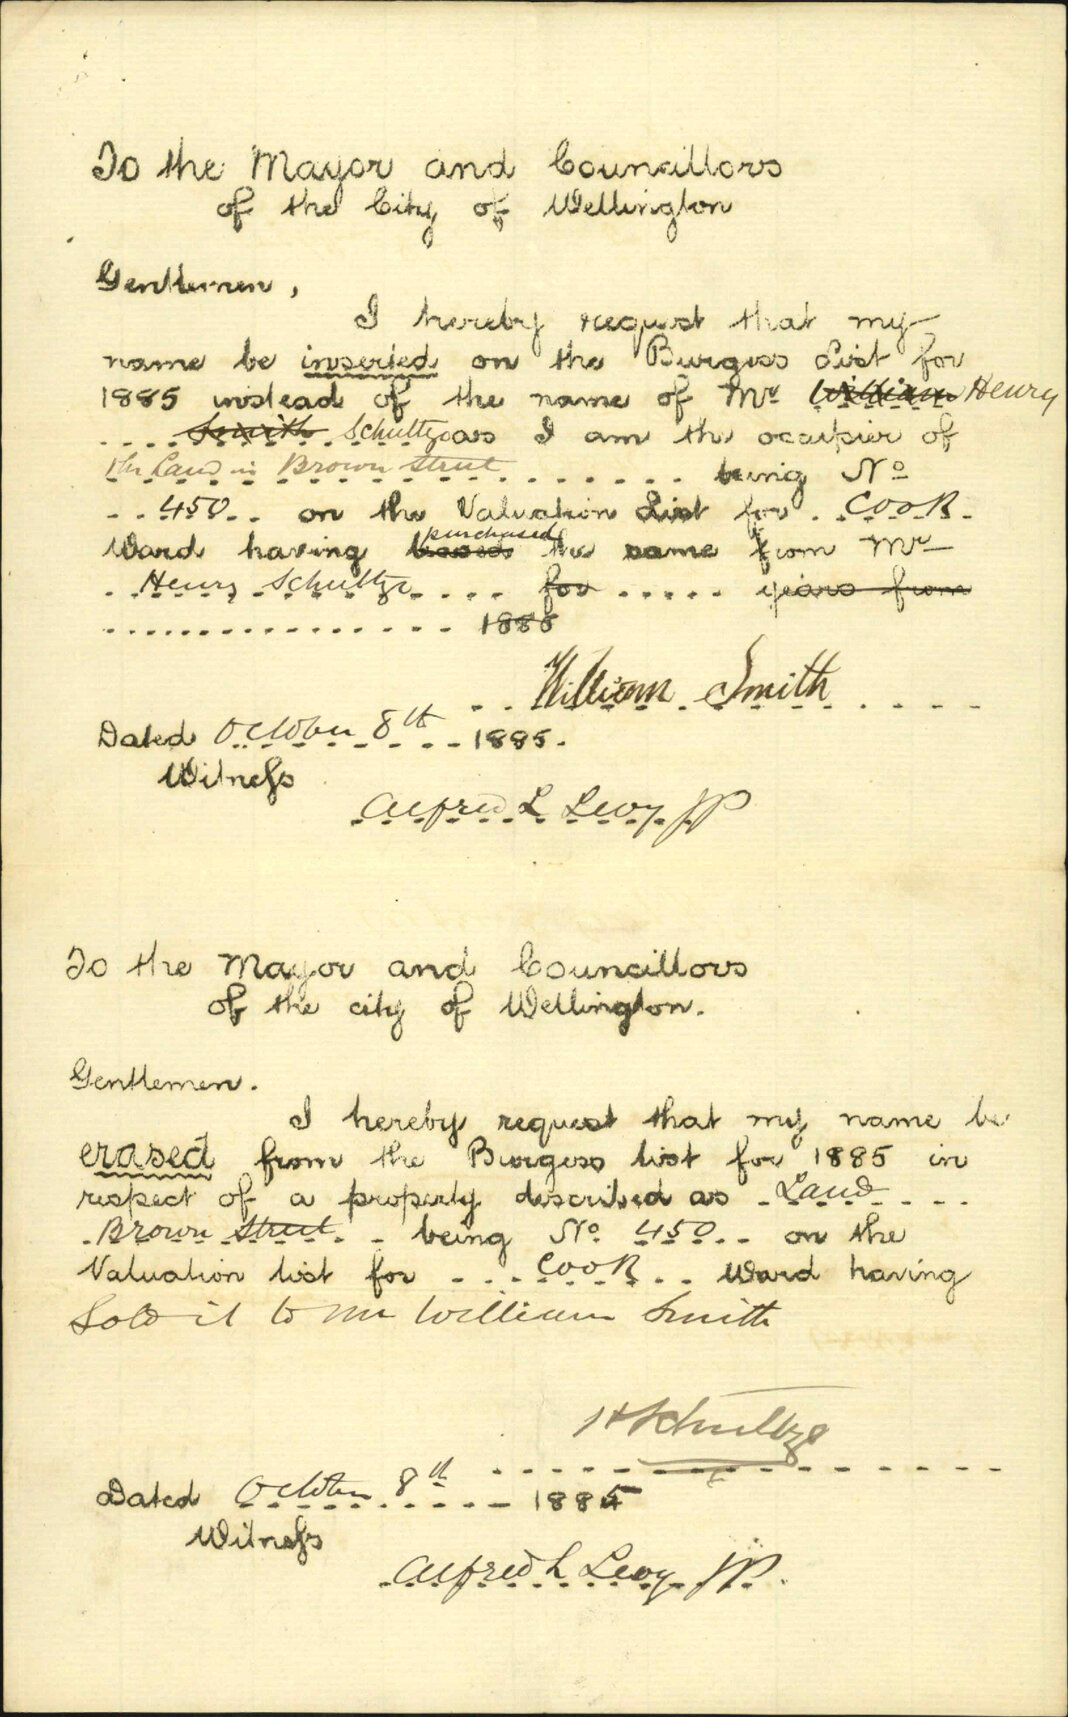 To the Mayor and Councillors
of the City of Wellington
Gentlemen,
I hereby request that my
name be inserted on the Burgess List for
1885 instead of the name of Mr William Henry
Smith Schultze as I am the occupier of
the Land in Brown Street being No
450 on the Valuation List for Cook
purchased
Ward having leased the same from Mr
Henry Schultze for years from
1885
William Smith
Dated October 8th 1885.
Witness
Alfred L Levy JP
To the Mayor and Councillors
of the city of Wellington.
Gentlemen.
I hereby request that my name be
erased from the Burgess list for 1885 in
respect of a property described as Land
Brown Street being No 450 on the
Valuation list for Cook Ward having
Sold it to Mr William Smith
H Schultze
Dated October 8th 1885
Witness
Alfred L Levy JP.